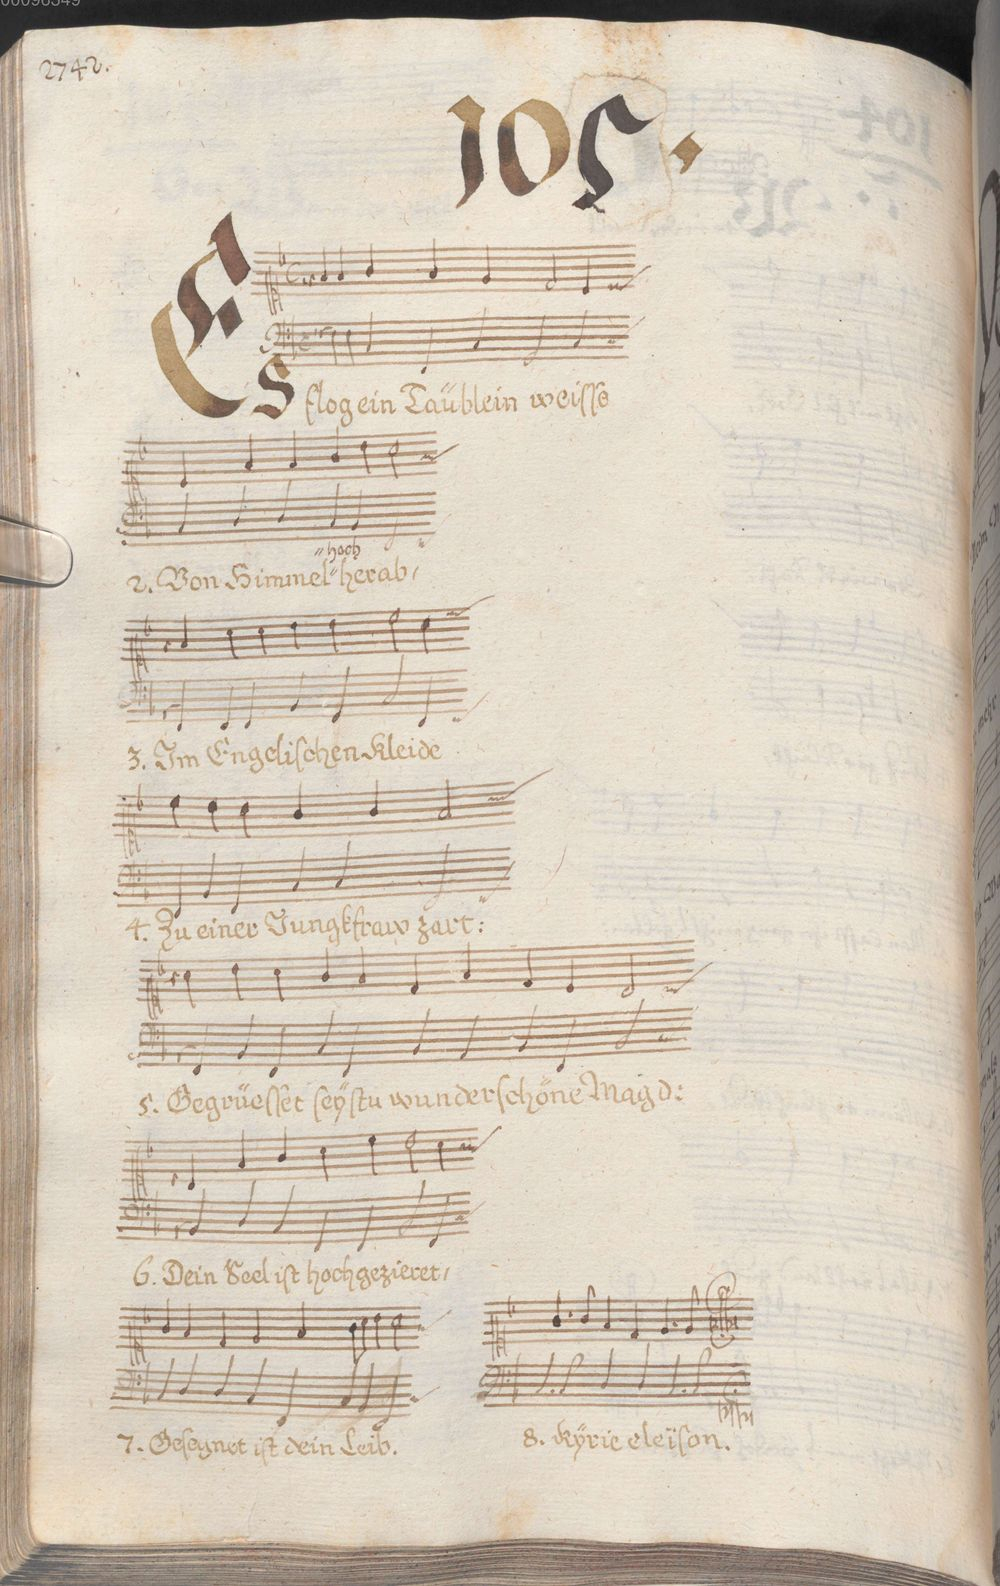 00098349
2742.
105.
Es flog ein Täüblein weisse
"hoch
2. Von Himmel" herab,
3. Im Engelischen Kleide
4. Zu einer Jungkfraw zart:
5. Gegrüesset seÿstu wunderschöne Magd:
6. Dein Seel ist hochgezieret,
7. Gesegnet ist dein Leib.
8. Kÿrie eleÿson.